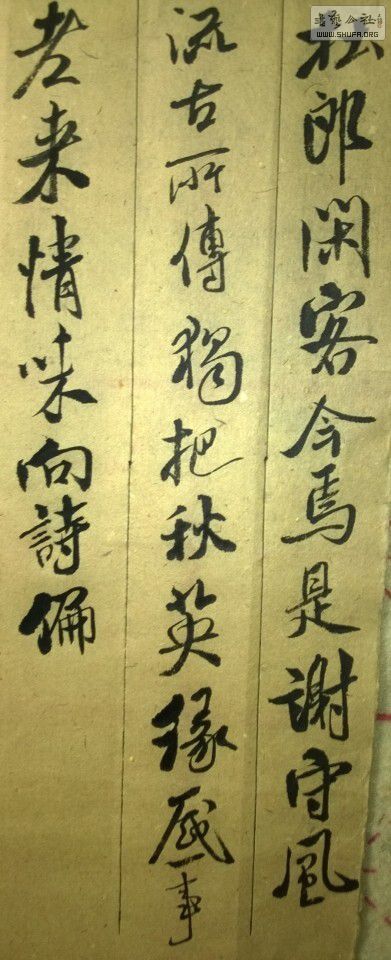 書藝公社
WWW.SHUFA.ORG
松郎閑客今焉是謝守風
流古所傳獨把秋英緣底事
老来情味向詩偏